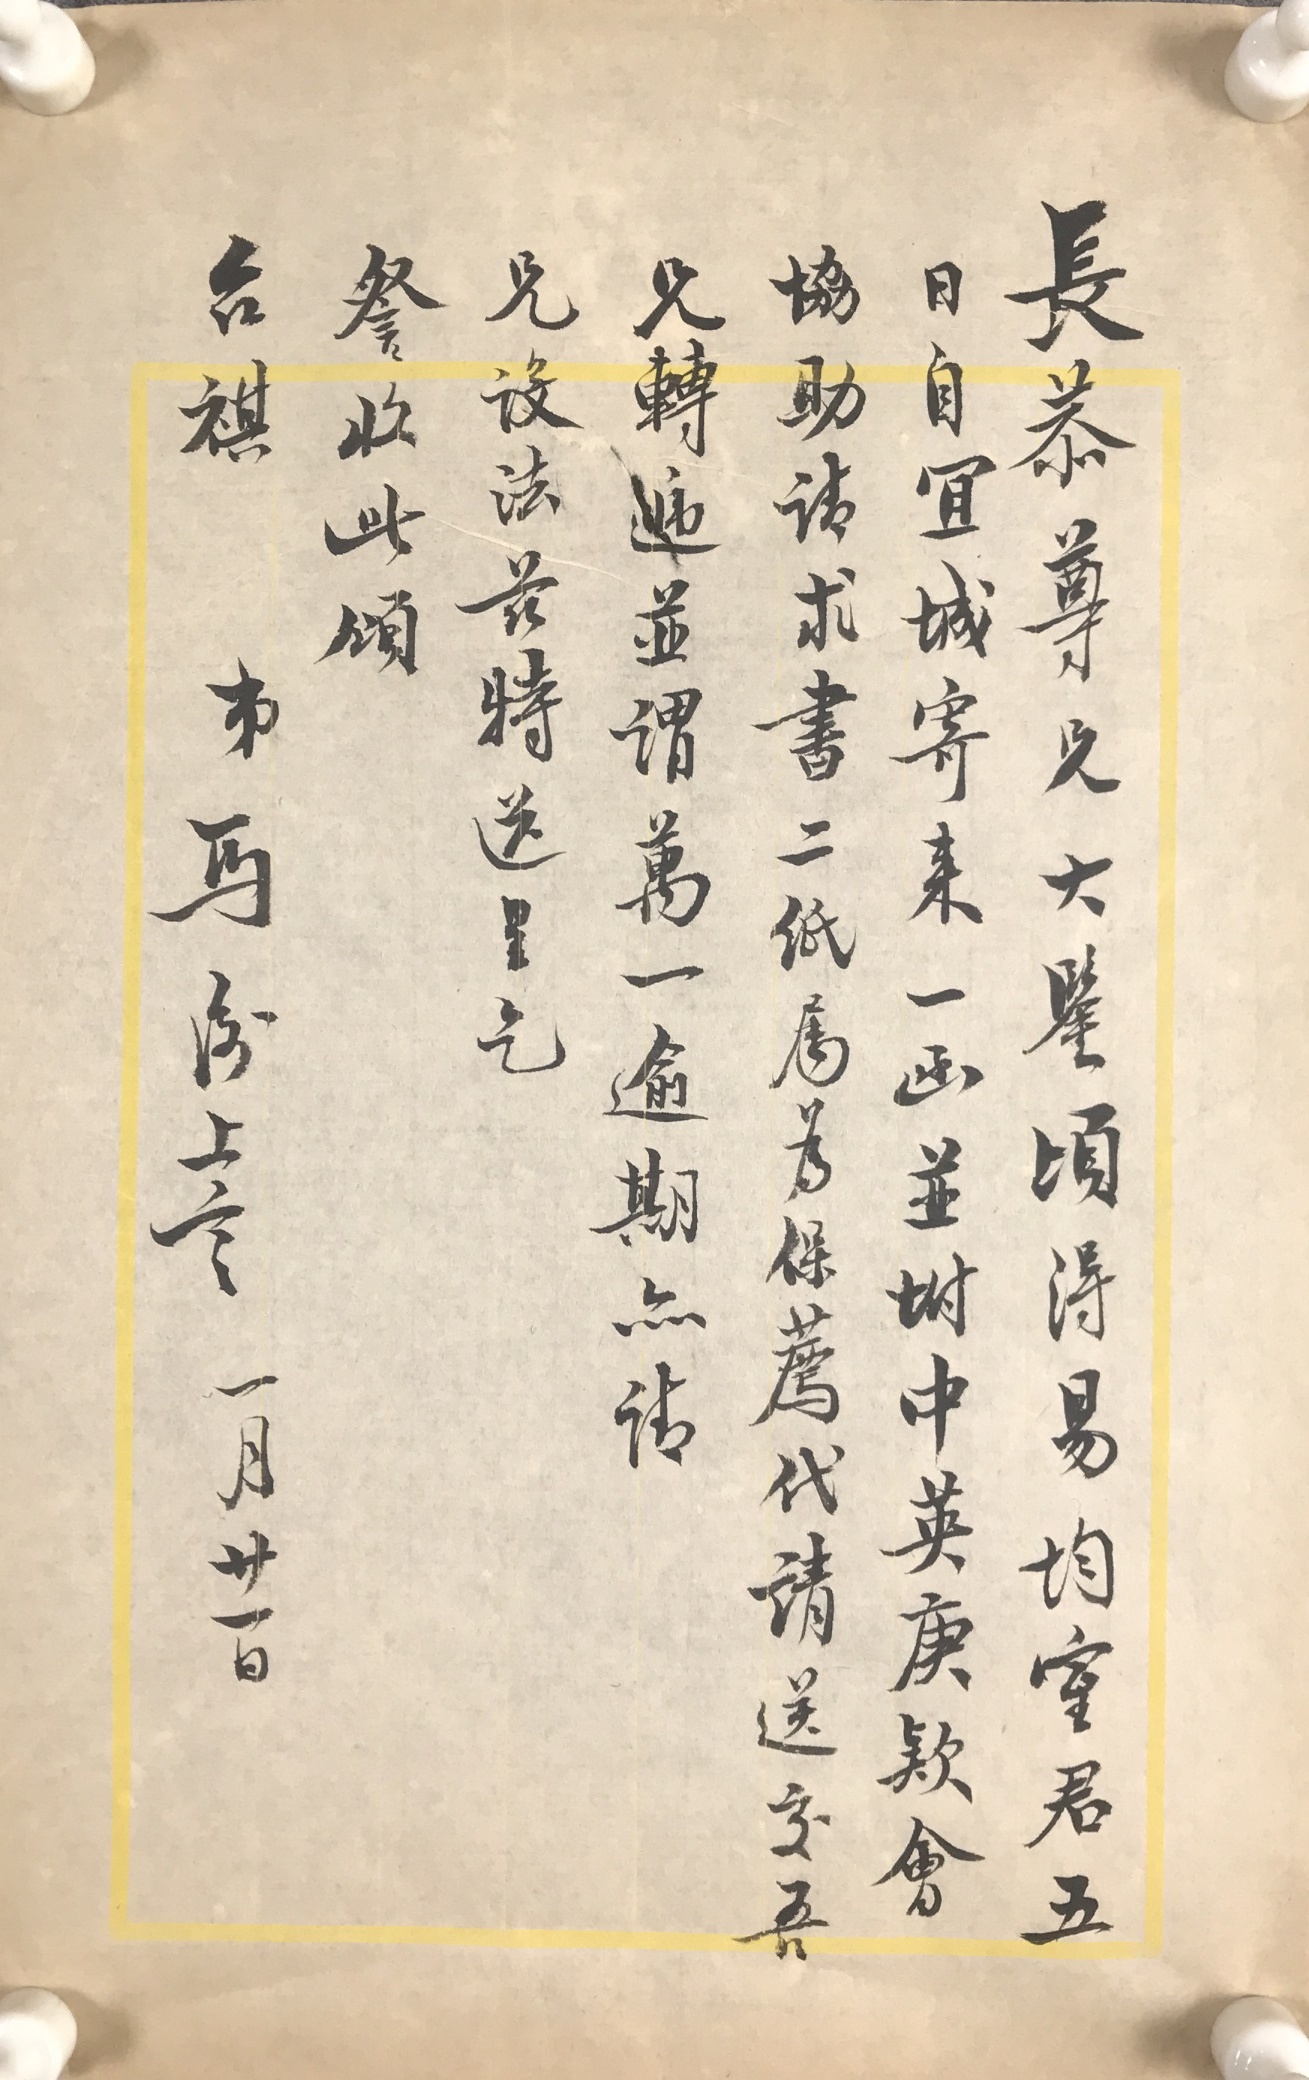 長恭尊兄大鑒頃得易均室君五
日自宜城寄来一函並坿中英庚款會
協助請求書二紙属為保薦代請送交吾
兄轉遞並謂萬一逾期亦請
兄設法茲特送呈乞
詧收此頌
台祺
弟馬衡上言 一月廿一日